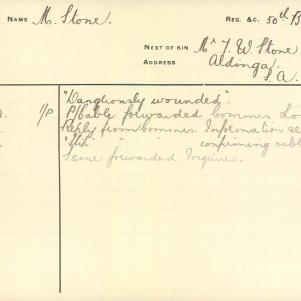 NAME M. Stone. REG. &C. 50th B
NEXT OF KIN Mr J. W Stone
ADDRESS Aldinga.
S.A.
"Dangerously wounded".
1/P Cable forwarded Commrs. Lo
Reply from Commrs. Information se
" " " confirming cabl
Same forwarded Inquirer.